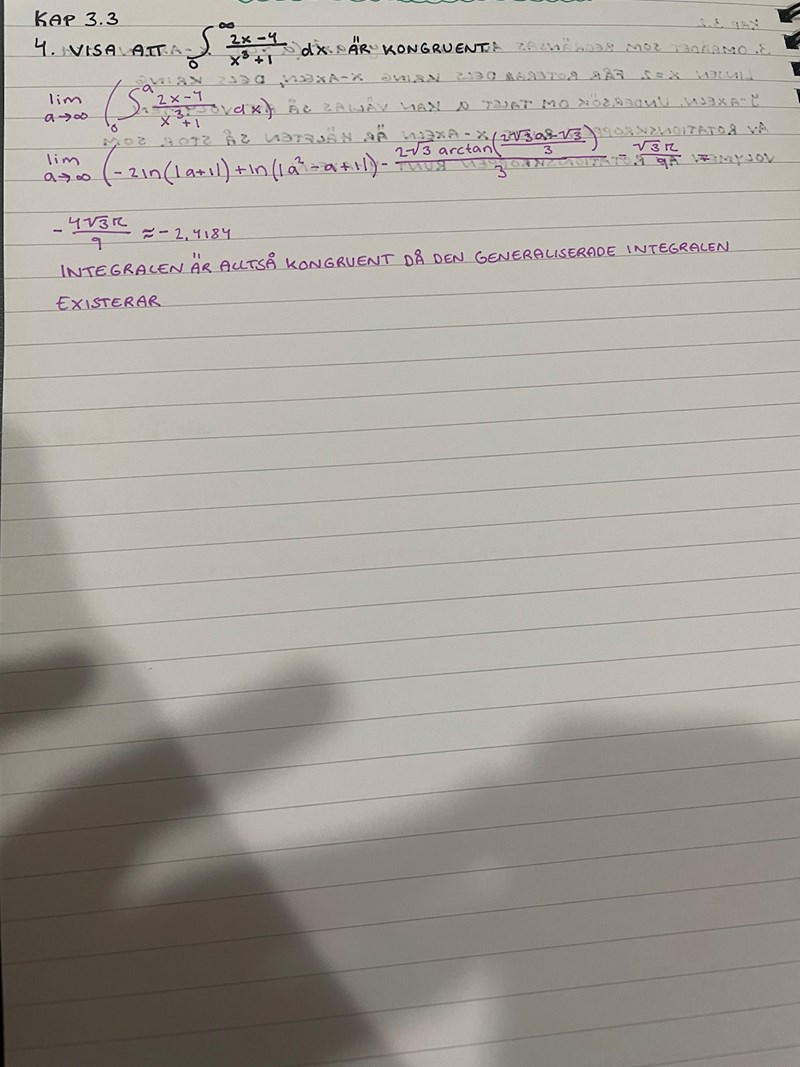 KAP 3.3
4. VISA ATT ∫₀^∞ (2x-4)/(x³+1) dx ÄR KONGRUENT.
lim a→∞ (∫₀^a (2x-4)/(x³+1) dx)
lim a→∞ (-2ln(|a+1|)+ln(|a²-a+1|)- 2√3 arctan( )/3 - √3π/9) =
-4√3π/9 ≈ -2,4184
INTEGRALEN ÄR ALLTSÅ KONGRUENT DÅ DEN GENERALISERADE INTEGRALEN
EXISTERAR